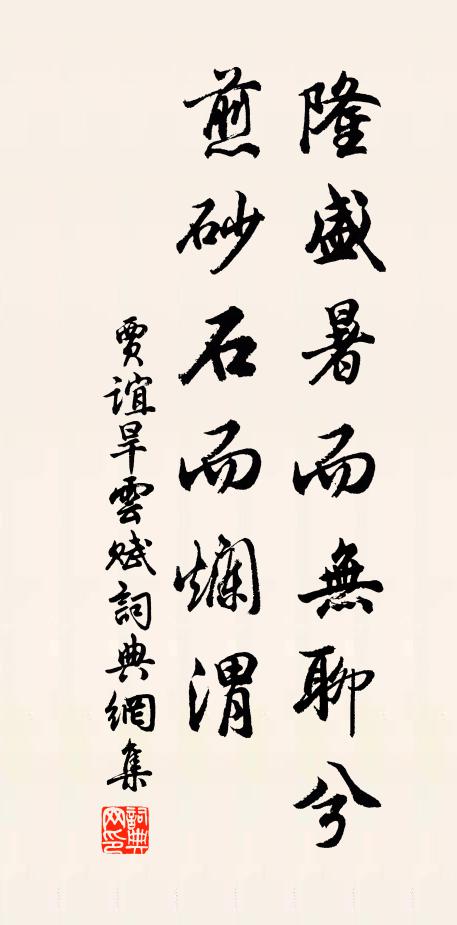 隆盛暑而無聊兮
煎砂石而爛渭
賈誼旱雲賦詞典網集
詞典网印